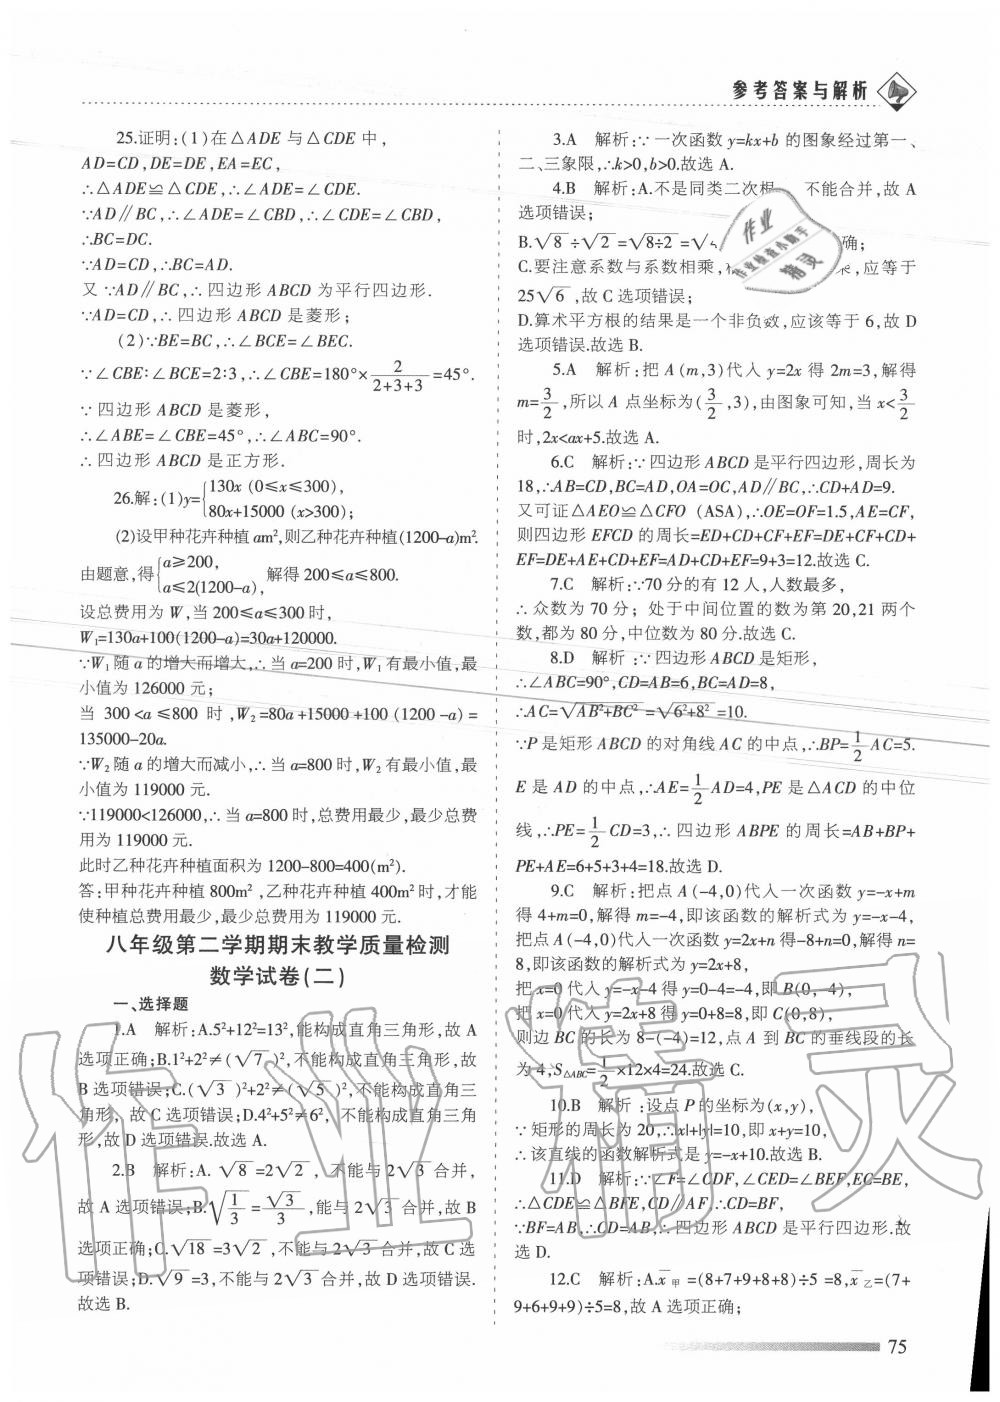 参考答案与解析
25.证明:(1)在△ADE 与△CDE 中,
AD=CD,DE=DE,EA=EC,
∴△ADE≌△CDE,∴∠ADE=∠CDE.
∵AD∥BC,∴∠ADE=∠CBD,∴∠CDE=∠CBD,
∴BC=DC.
∵AD=CD,∴BC=AD.
又∵AD∥BC,∴四边形 ABCD 为平行四边形.
∵AD=CD,∴四边形 ABCD 是菱形;
(2)∵BE=BC,∴∠BCE=∠BEC.
∵∠CBE∶∠BCE=2∶3,∴∠CBE=180°×2/(2+3+3)=45°.
∵四边形 ABCD 是菱形,
∴∠ABE=∠CBE=45°,∴∠ABC=90°.
∴四边形 ABCD 是正方形.
26.解:(1)y={130x (0≤x≤300),
80x+15000 (x>300);
(2)设甲种花卉种植 am²,则乙种花卉种植(1200-a)m².
由题意,得{a≥200, a≤2(1200-a), 解得 200≤a≤800.
设总费用为 W,当 200≤a≤300 时,
W₁=130a+100(1200-a)=30a+120000.
∵W₁随 a 的增大而增大,∴当 a=200 时,W₁有最小值,最
小值为 126000 元;
当 300<a≤800 时,W₂=80a+15000+100(1200-a)=
135000-20a.
∵W₂随 a 的增大而减小,∴当 a=800 时,W₂有最小值,最
小值为 119000 元.
∵119000<126000,∴当 a=800 时,总费用最少,最少总费
用为 119000 元.
此时乙种花卉种植面积为 1200-800=400(m²).
答:甲种花卉种植 800m²,乙种花卉种植 400m²时,才能
使种植总费用最少,最少总费用为 119000 元.
八年级第二学期期末教学质量检测
数学试卷(二)
一、选择题
1.A 解析:A.5²+12²=13²,能构成直角三角形,故 A
选项正确;B.1²+2²≠(√7)²,不能构成直角三角形,故
B 选项错误;C.(√3)²+2²≠(√5)²,不能构成直角三
角形,故 C 选项错误;D.4²+5²≠6²,不能构成直角三角
形,故 D 选项错误.故选 A.
2.B 解析:A.√8=2√2,不能与 2√3 合并,
故 A 选项错误;B.√(1/3)=√3/3,能与 2√3 合并,故 B
选项正确;C.√18=3√2,不能与 2√3 合并,故 C 选
项错误;D.√9=3,不能与 2√3 合并,故 D 选项错误.
故选 B.
3.A 解析:∵一次函数 y=kx+b 的图象经过第一、
二、三象限,∴k>0,b>0.故选 A.
4.B 解析:A.不是同类二次根 不能合并,故 A
选项错误;
B.√8÷√2=√(8÷2)=√ 确;
C.要注意系数与系数相乘, 乘,应等于
25√6,故 C 选项错误;
D.算术平方根的结果是一个非负数,应该等于 6,故 D
选项错误.故选 B.
5.A 解析:把 A(m,3)代入 y=2x 得 2m=3,解得
m=3/2,所以 A 点坐标为(3/2,3),由图象可知,当 x<3/2
时,2x<ax+5.故选 A.
6.C 解析:∵四边形 ABCD 是平行四边形,周长为
18,∴AB=CD,BC=AD,OA=OC,AD∥BC,∴CD+AD=9.
又可证△AEO≌△CFO(ASA),∴OE=OF=1.5,AE=CF,
则四边形 EFCD 的周长=ED+CD+CF+EF=DE+CF+CD+
EF=DE+AE+CD+EF=AD+CD+EF=9+3=12.故选 C.
7.C 解析:∵70 分的有 12 人,人数最多,
∴众数为 70 分;处于中间位置的数为第 20,21 两个
数,都为 80 分,中位数为 80 分.故选 C.
8.D 解析:∵四边形 ABCD 是矩形,
∴∠ABC=90°,CD=AB=6,BC=AD=8,
∴AC=√(AB²+BC²)=√(6²+8²)=10.
∵P 是矩形 ABCD 的对角线 AC 的中点,∴BP=1/2 AC=5.
E 是 AD 的中点,∴AE=1/2 AD=4,PE 是△ACD 的中位
线,∴PE=1/2 CD=3,∴四边形 ABPE 的周长=AB+BP+
PE+AE=6+5+3+4=18.故选 D.
9.C 解析:把点 A(-4,0)代入一次函数 y=-x+m
得 4+m=0,解得 m=-4,即该函数的解析式为 y=-x-4,
把点 A(-4,0)代入一次函数 y=2x+n 得-8+n=0,解得 n=
8,即该函数的解析式为 y=2x+8,
把 x=0 代入 y=-x-4 得 y=0-4=-4,即 B(0,-4),
把 x=0 代入 y=2x+8 得 y=0+8=8,即 C(0,8),
则边 BC 的长为 8-(-4)=12,点 A 到 BC 的垂线段的长
为 4,S△ABC=1/2×12×4=24.故选 C.
10.B 解析:设点 P 的坐标为(x,y),
∵矩形的周长为 20,∴|x|+|y|=10,即 x+y=10,
∴该直线的函数解析式是 y=-x+10.故选 B.
11.D 解析:∵∠F=∠CDF,∠CED=∠BEF,EC=BE,
∴△CDE≌△BFE,CD∥AF,∴CD=BF,
∵BF=AB,∴CD=AB,∴四边形 ABCD 是平行四边形.故
选 D.
12.C 解析:A.x̄甲=(8+7+9+8+8)÷5=8,x̄乙=(7+
9+6+9+9)÷5=8,故 A 选项正确;
75
作业
作业检查小助手
精灵
作业精灵